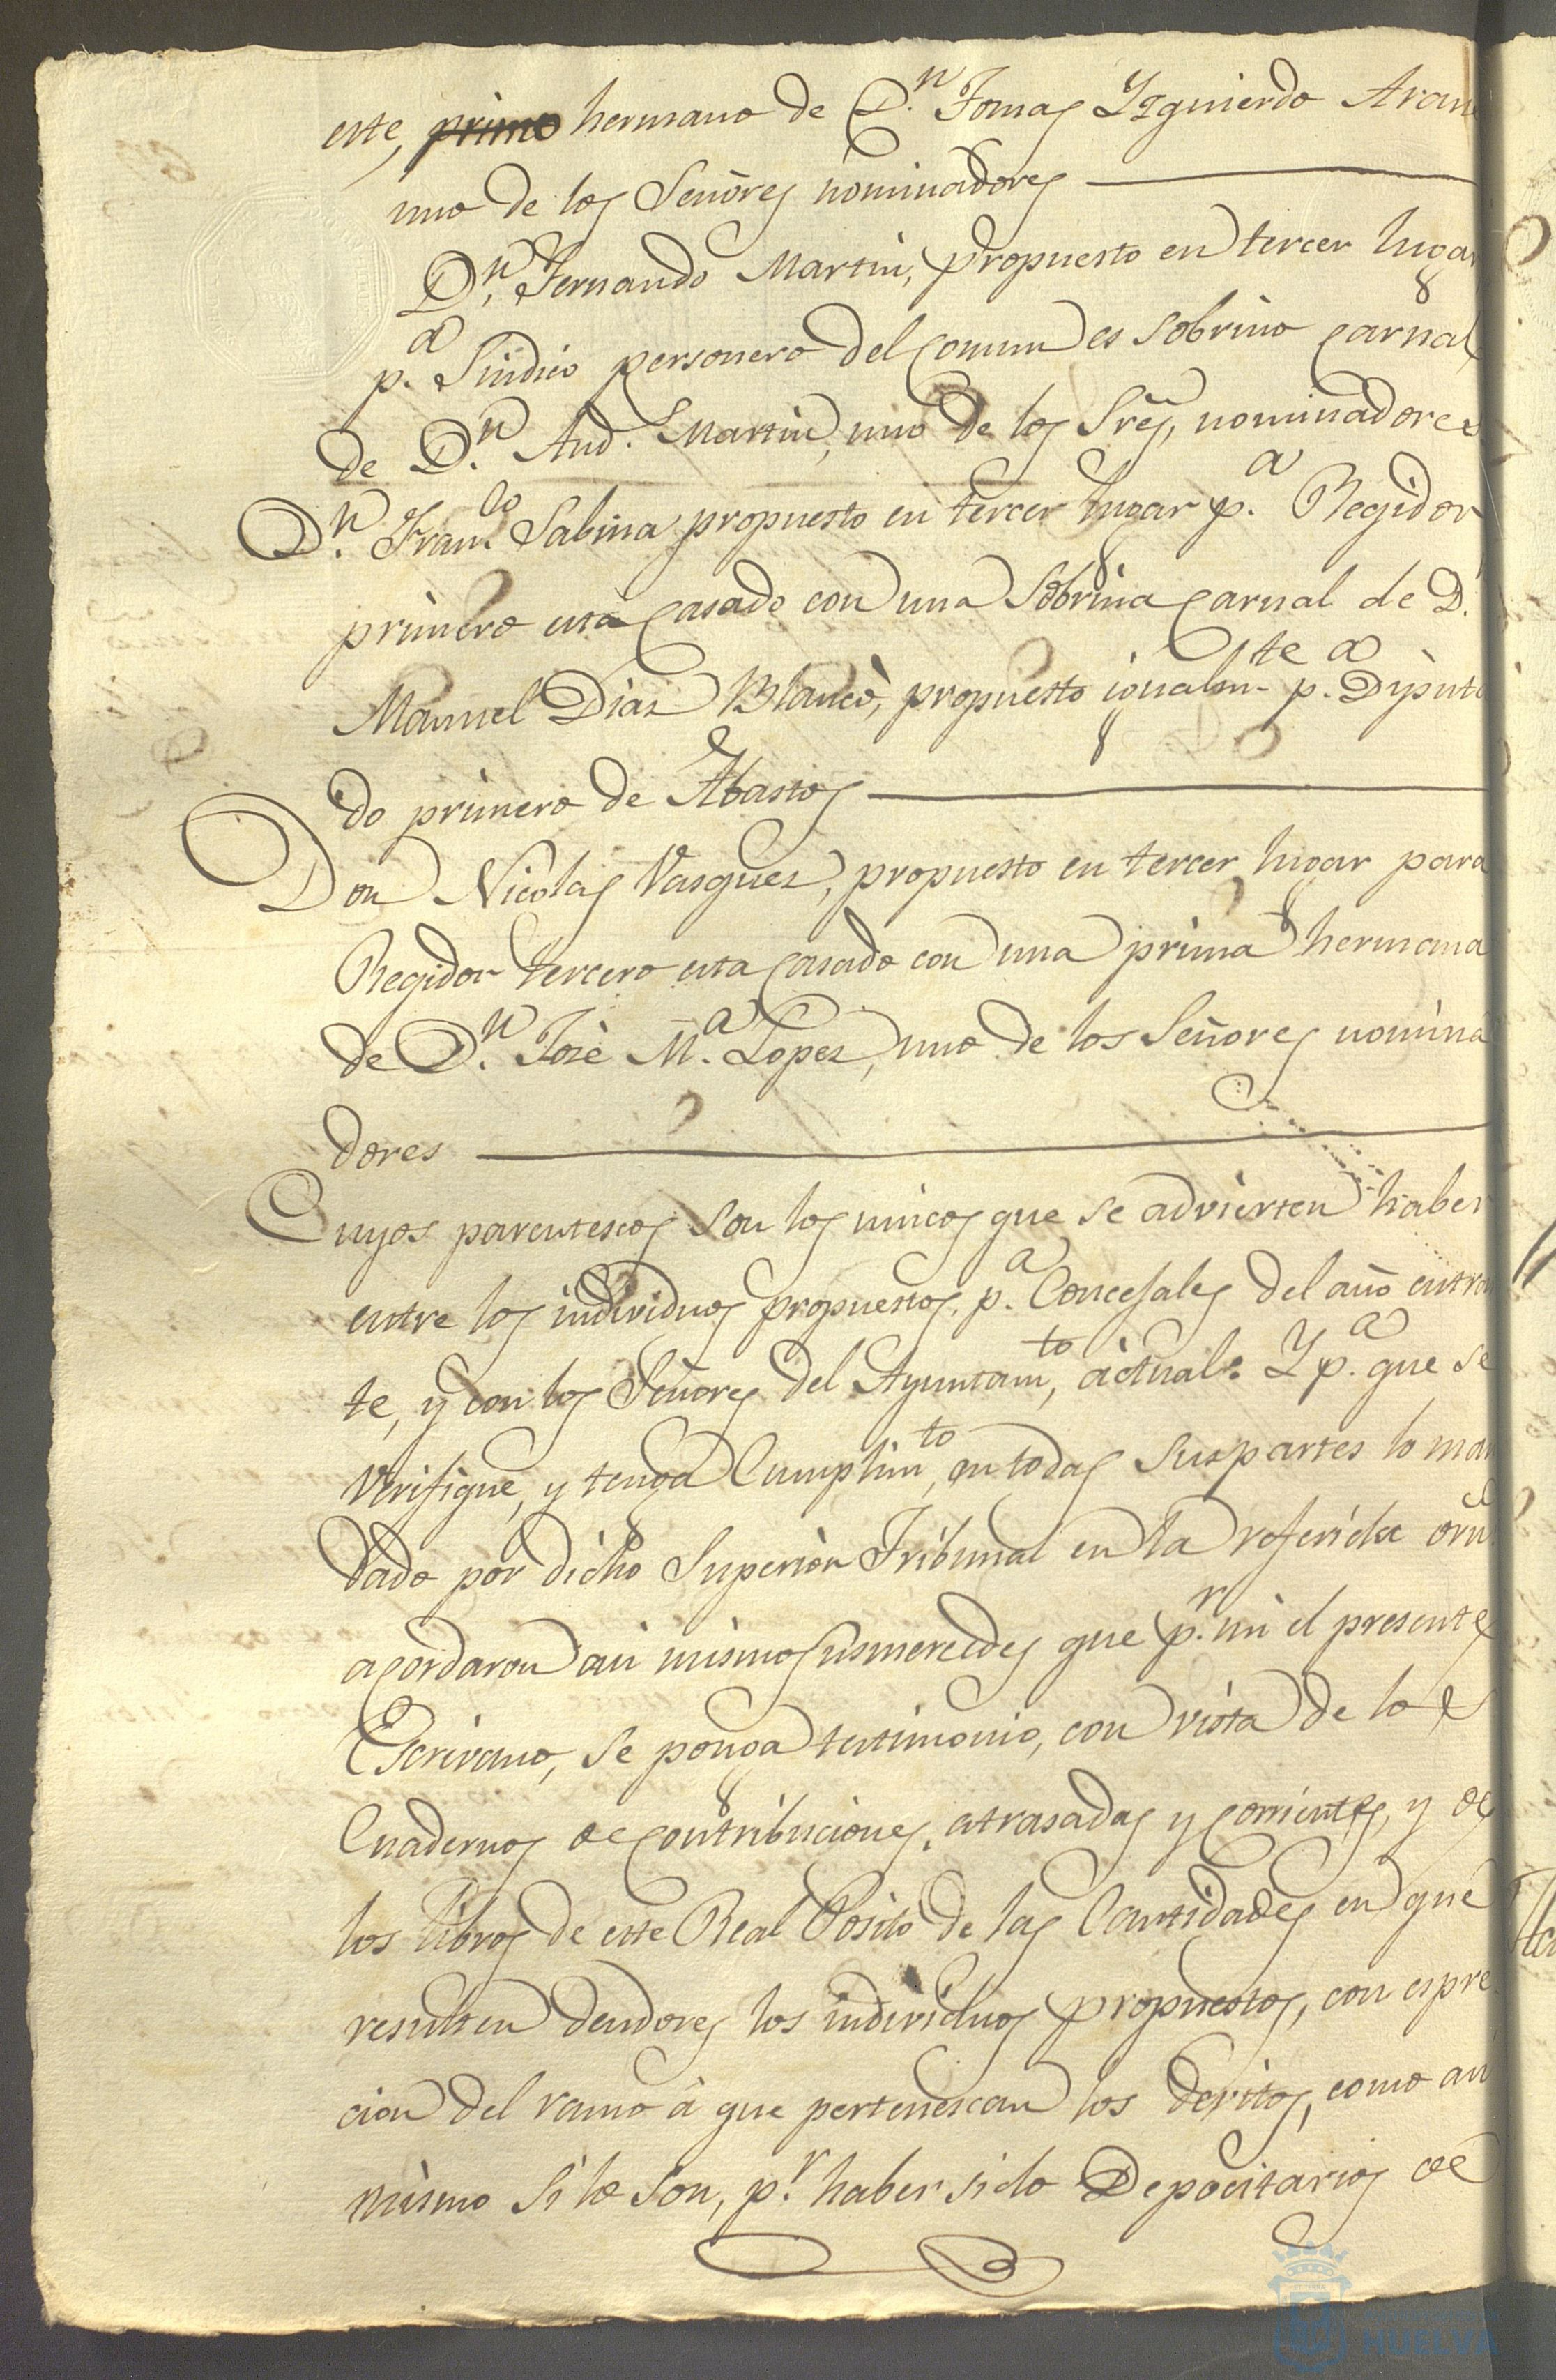 este, primo hermano de D.ⁿ Tomas Yzquierdo Aran
uno de los Señores nominadores
D.ⁿ Fernando Martin, propuesto en tercer lugar
p.ª Sindico personero del comun es sobrino carnal
de D.ⁿ And. Martin, uno de los Sres, nominadores
D.ⁿ Fran.co Sabina propuesto en tercer lugar p.ª Regidor
primero esta casado con una Sobrina carnal de D.
Manuel Diaz Blanco, propuesto igualm.te p.ª Diputa
do primero de Abastos
Don Nicolas Vasquez, propuesto en tercer lugar para
Regidor tercero esta casado con una prima hermana
de D.ⁿ José M.ª Lopez, uno de los Señores nomina
dores
Cuyos parentescos son los unicos que se advierten haber
entre los individuos propuestos p.ª Concejales del año entran
te, y con los Señores del Ayuntam.to, actual. Y p.ª que se
verifique, y tenga Cumplim.to, en todas sus partes lo man
dado por dicho Superior Tribunal en la referida orn.
acordaron asi mismo Susmercedes que p.r mi el presente
Escrivano, se ponga testimonio, con vista de los
Cuadernos de contribuciones, atrasadas y corrientes, y de
los libros de este Real Posito de las Cantidades en que
resulten deudores los individuos propuestos, con espre
cion del ramo á que pertenescan los devitos, como asi
mismo si lo son, p.r haber sido Depocitarios de
HUELVA